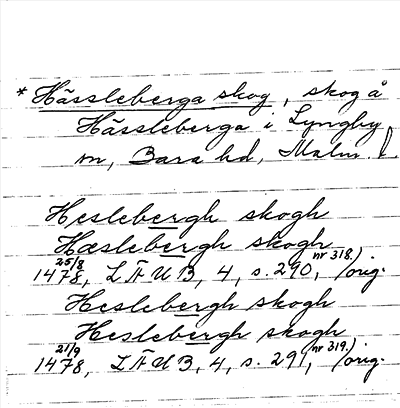 * Hässleberga skog, skog å
Hässleberga i Lyngby
sn, Bara hd, Malm. l.
Heslebergh skogh
Hæslebergh skogh
1478 25/8, LÄUB, 4, s. 290, nr 318.) orig.
Heslebergh skogh
Heslebergh skogh
1478 21/9, LÄUB, 4, s. 291, nr 319.) orig.